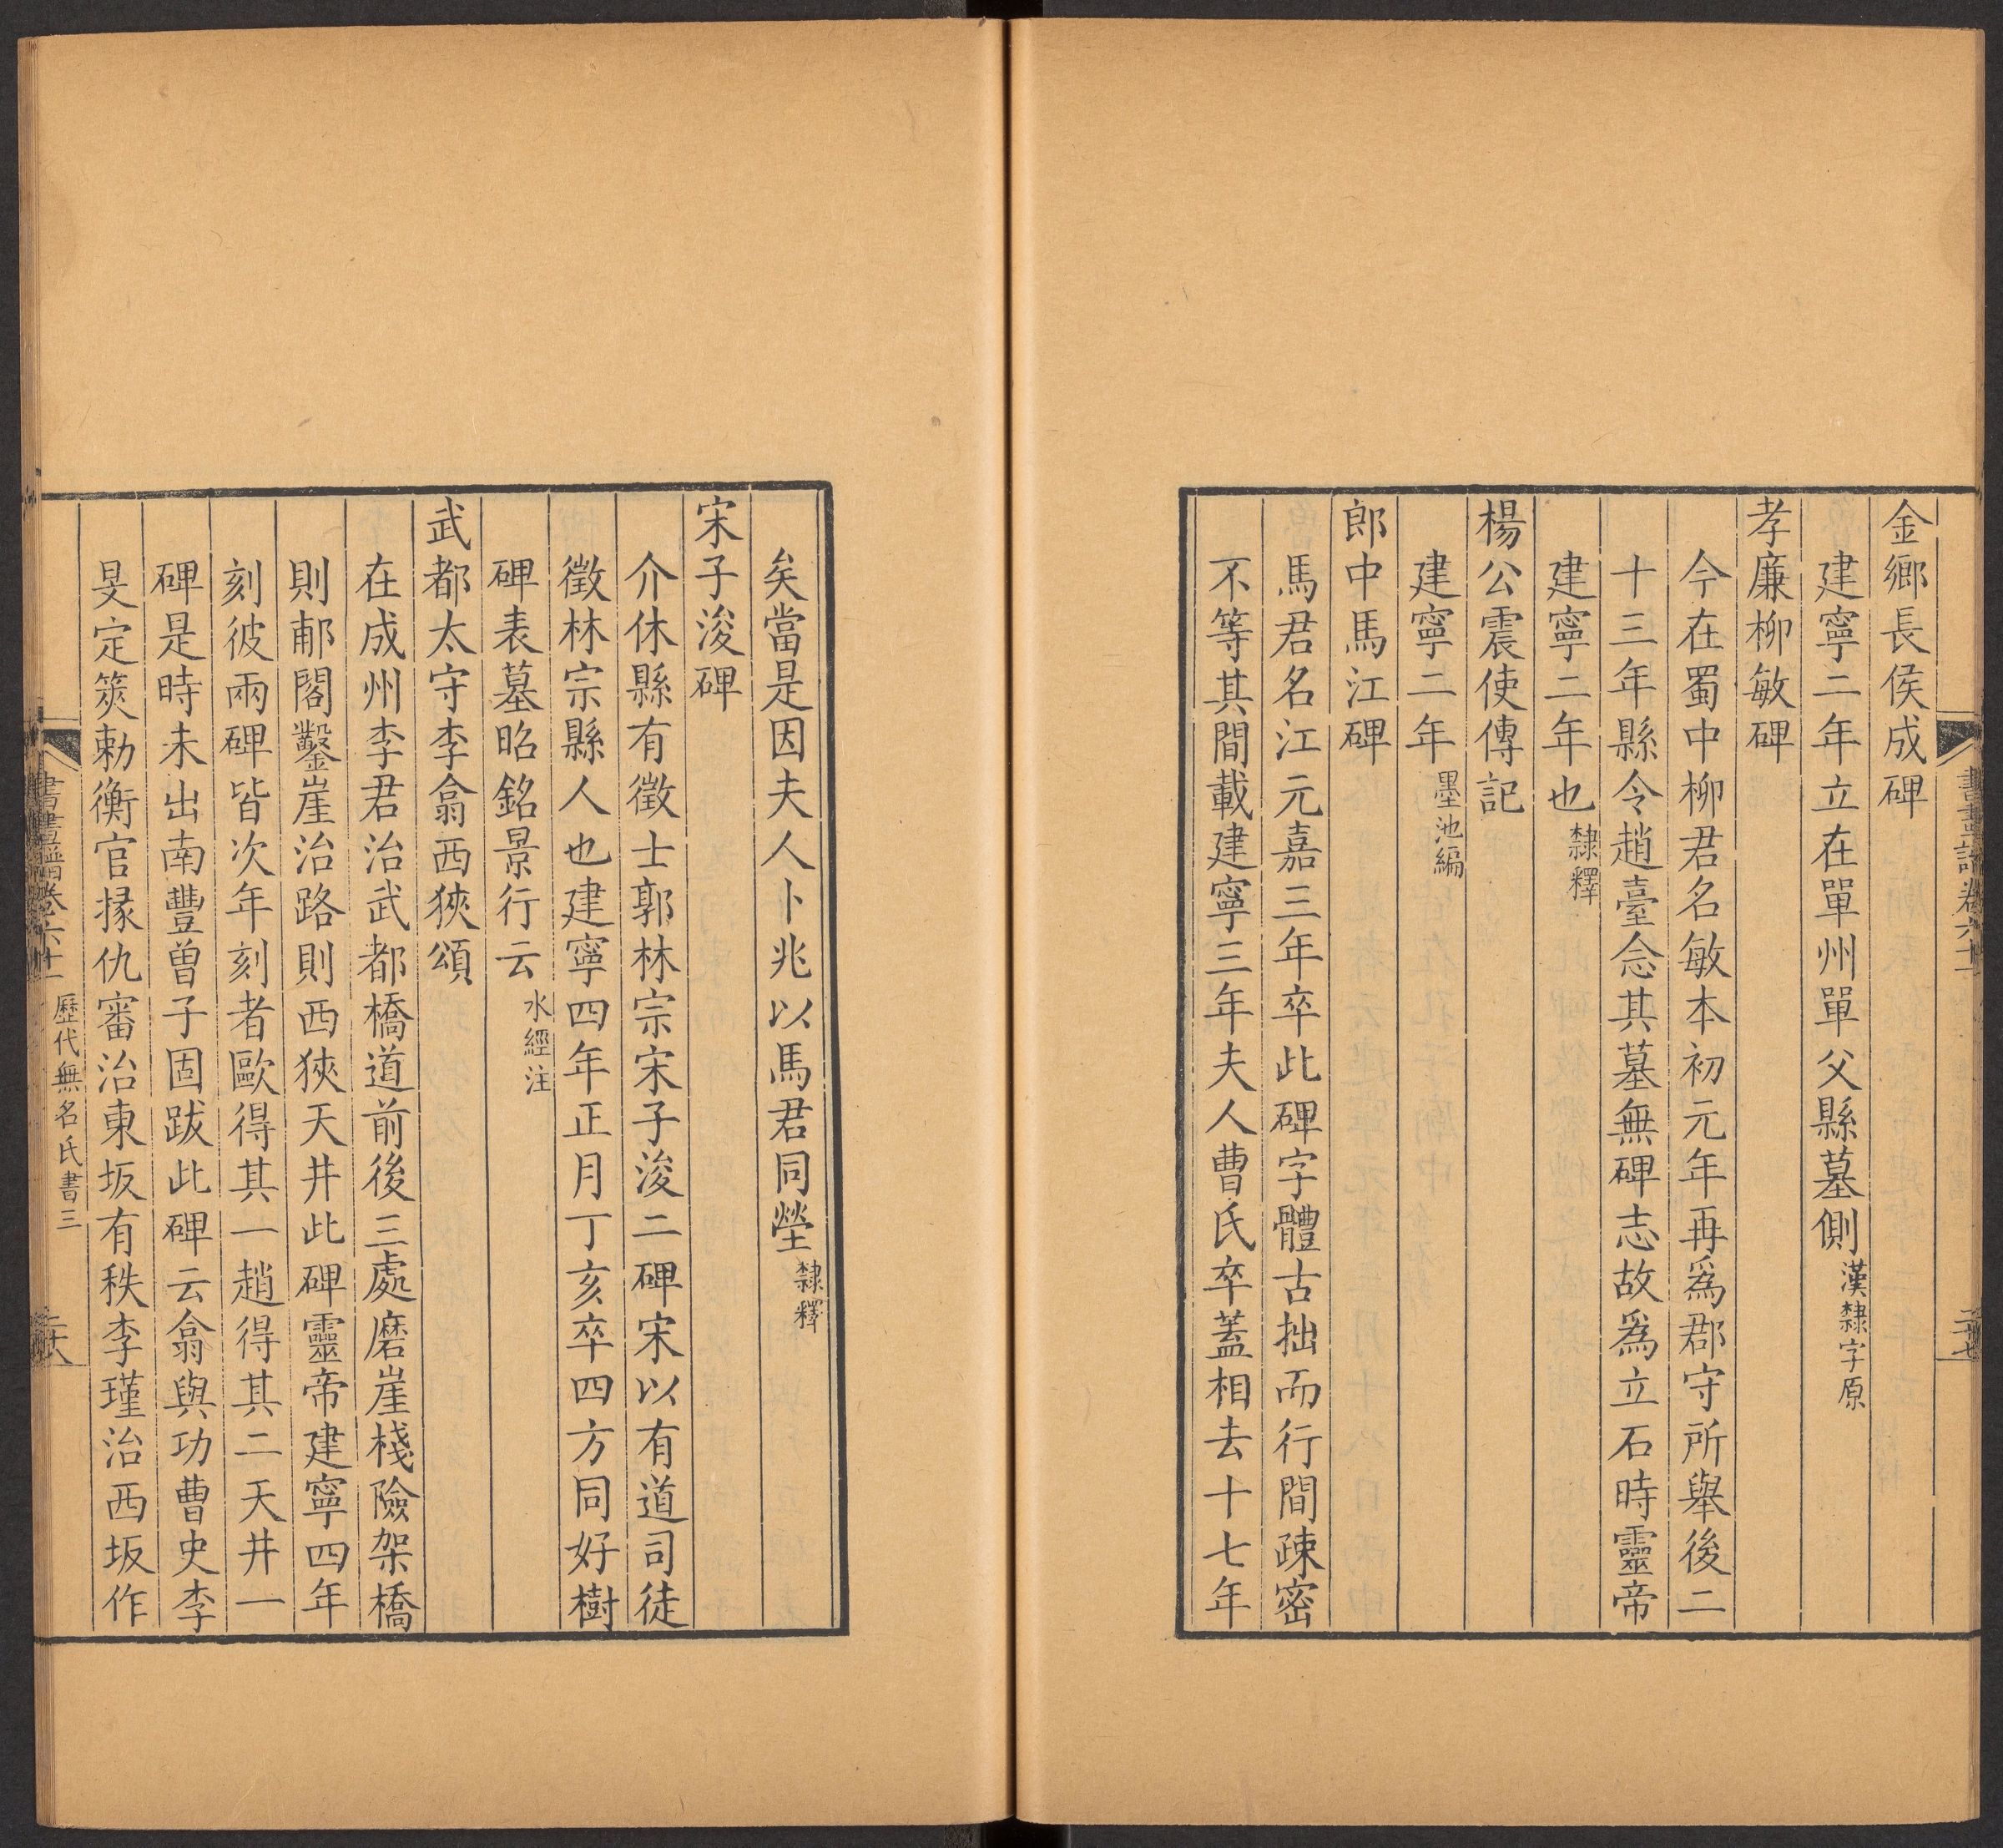 金鄉長侯成碑
建寧二年立在單州單父縣墓側漢隸字原
孝廉柳敏碑
今在蜀中柳君名敏本初元年再爲郡守所舉後二
十三年縣令趙臺念其墓無碑志故爲立石時靈帝
建寧二年也隸釋
楊公震使傳記
建寧二年墨池編
郎中馬江碑
馬君名江元嘉三年卒此碑字體古拙而行間疎密
不等其間載建寧三年夫人曹氏卒蓋相去十七年
矣當是因夫人卜兆以馬君同塋隸釋
宋子浚碑
介休縣有徵士郭林宗宋子浚二碑宋以有道司徒
徵林宗縣人也建寧四年正月丁亥卒四方同好樹
碑表墓昭銘景行云水經注
武都太守李翕西狹頌
在成州李君治武都橋道前後三處磨崖棧險架橋
則郙閣鑿崖治路則西狹天井此碑靈帝建寧四年
刻彼兩碑皆次年刻者歐得其一趙得其二天井一
碑是時未出南豐曾子固跋此碑云翕與功曹史李
旻定筴勅衡官掾仇審治東坂有秩李瑾治西坂作
歷代無名氏書三